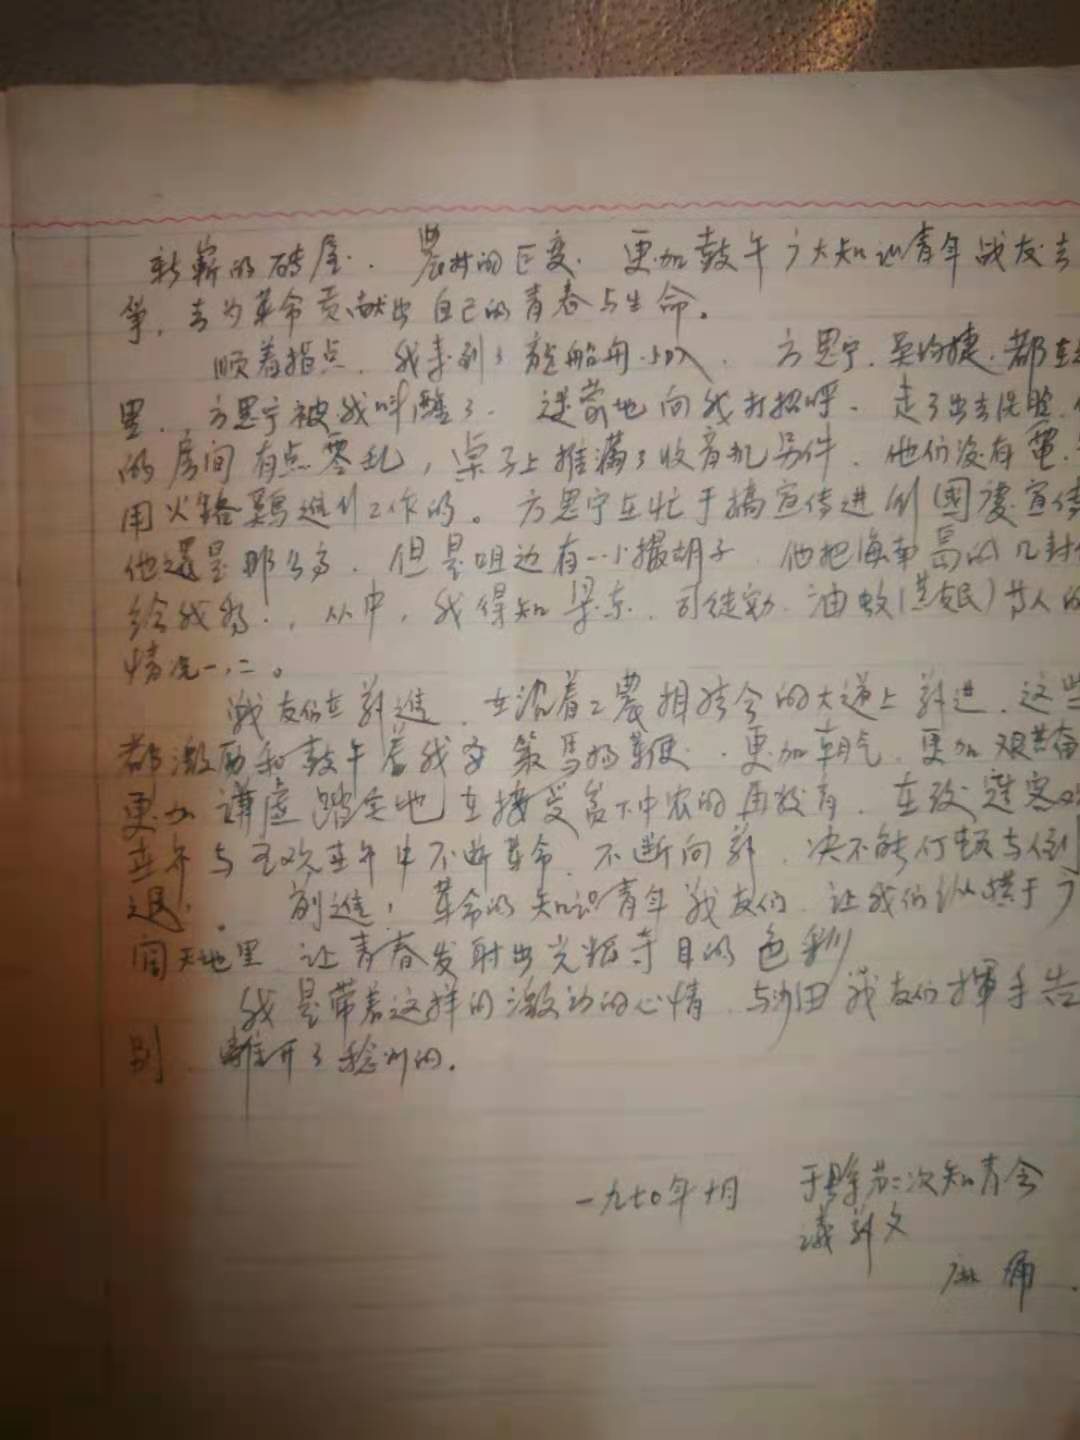 崭新的砖屋、農村的巨变、更加鼓午广大知识青年战友去
争，去为革命贡献出自己的青春与生命。
顺着指点，我来到了龍船舟小队，方思宁、吴均捷、都在
里，方思宁被我叫醒了，迷蒙地向我打招呼，走了出去洗脸，
的房间有点零乱，桌子上推满了收音机另件，他们没有電，
用火 進行工作的。方思宁在忙于搞宣传进行國慶宣传
他還是那么高，但是咀边有一小撮胡子，他把海南島的几封
给我 ，从中，我得知梁东、司徒 、油蚊( 民)等人的
情况一、二。
战友们在前進，在沿着工農相结合的大道上前进，这些
都激励和鼓午着我要策馬扬鞭，更加朝气，更加艰苦奋
更加謙虚踏实地在接受貧下中农的再教育，在
与 中不断革命，不断向前，决不能停顿与倒
退，前進，革命的知识青年战友们，让我们纵横于广
闊天地里，让青春发射出光辉夺目的色彩
我是带着这样的激动的心情，与沙田战友们揮手告
别，離开了 的。
一九七〇年十月 于 第二次知青会
議前夕